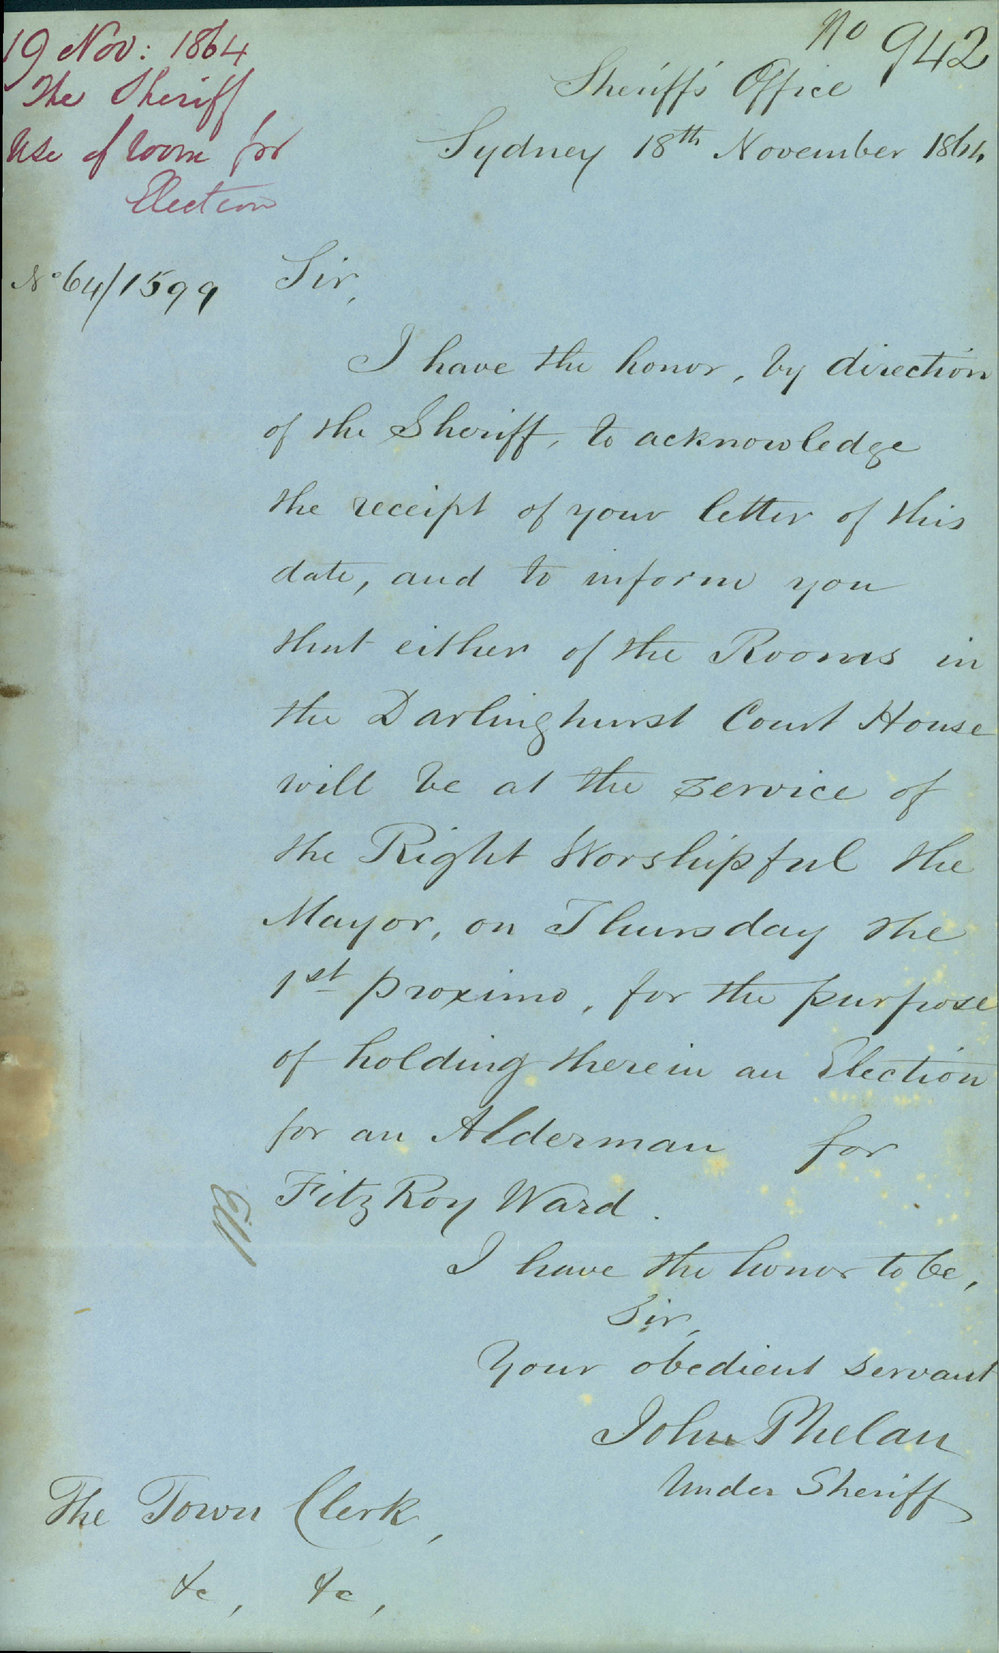 19 Nov: 1864
The Sheriff
Use of room for
Election
No 942
Sheriff's Office
Sydney 18th November 1864
No 64/1599
Sir,
I have the honor, by direction
of the Sheriff, to acknowledge
the receipt of your letter of this
date, and to inform you
that either of the Rooms in
the Darlinghurst Court House
will be at the service of
the Right Worshipful the
Mayor, on Thursday the
1st proximo, for the purpose
of holding therein an Election
for an Alderman for
FitzRoy Ward.
I have the honor to be,
Sir,
Your obedient servant
John Phelan
Under Sheriff
The Town Clerk,
&c, &c,